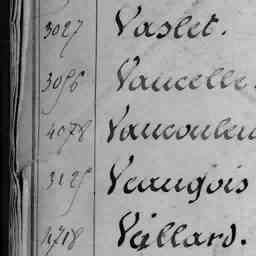 3027 Vaslet.
3056 Vaucelle
4078 Vaucouleu
3125 Veaugois
4718 Veillard.